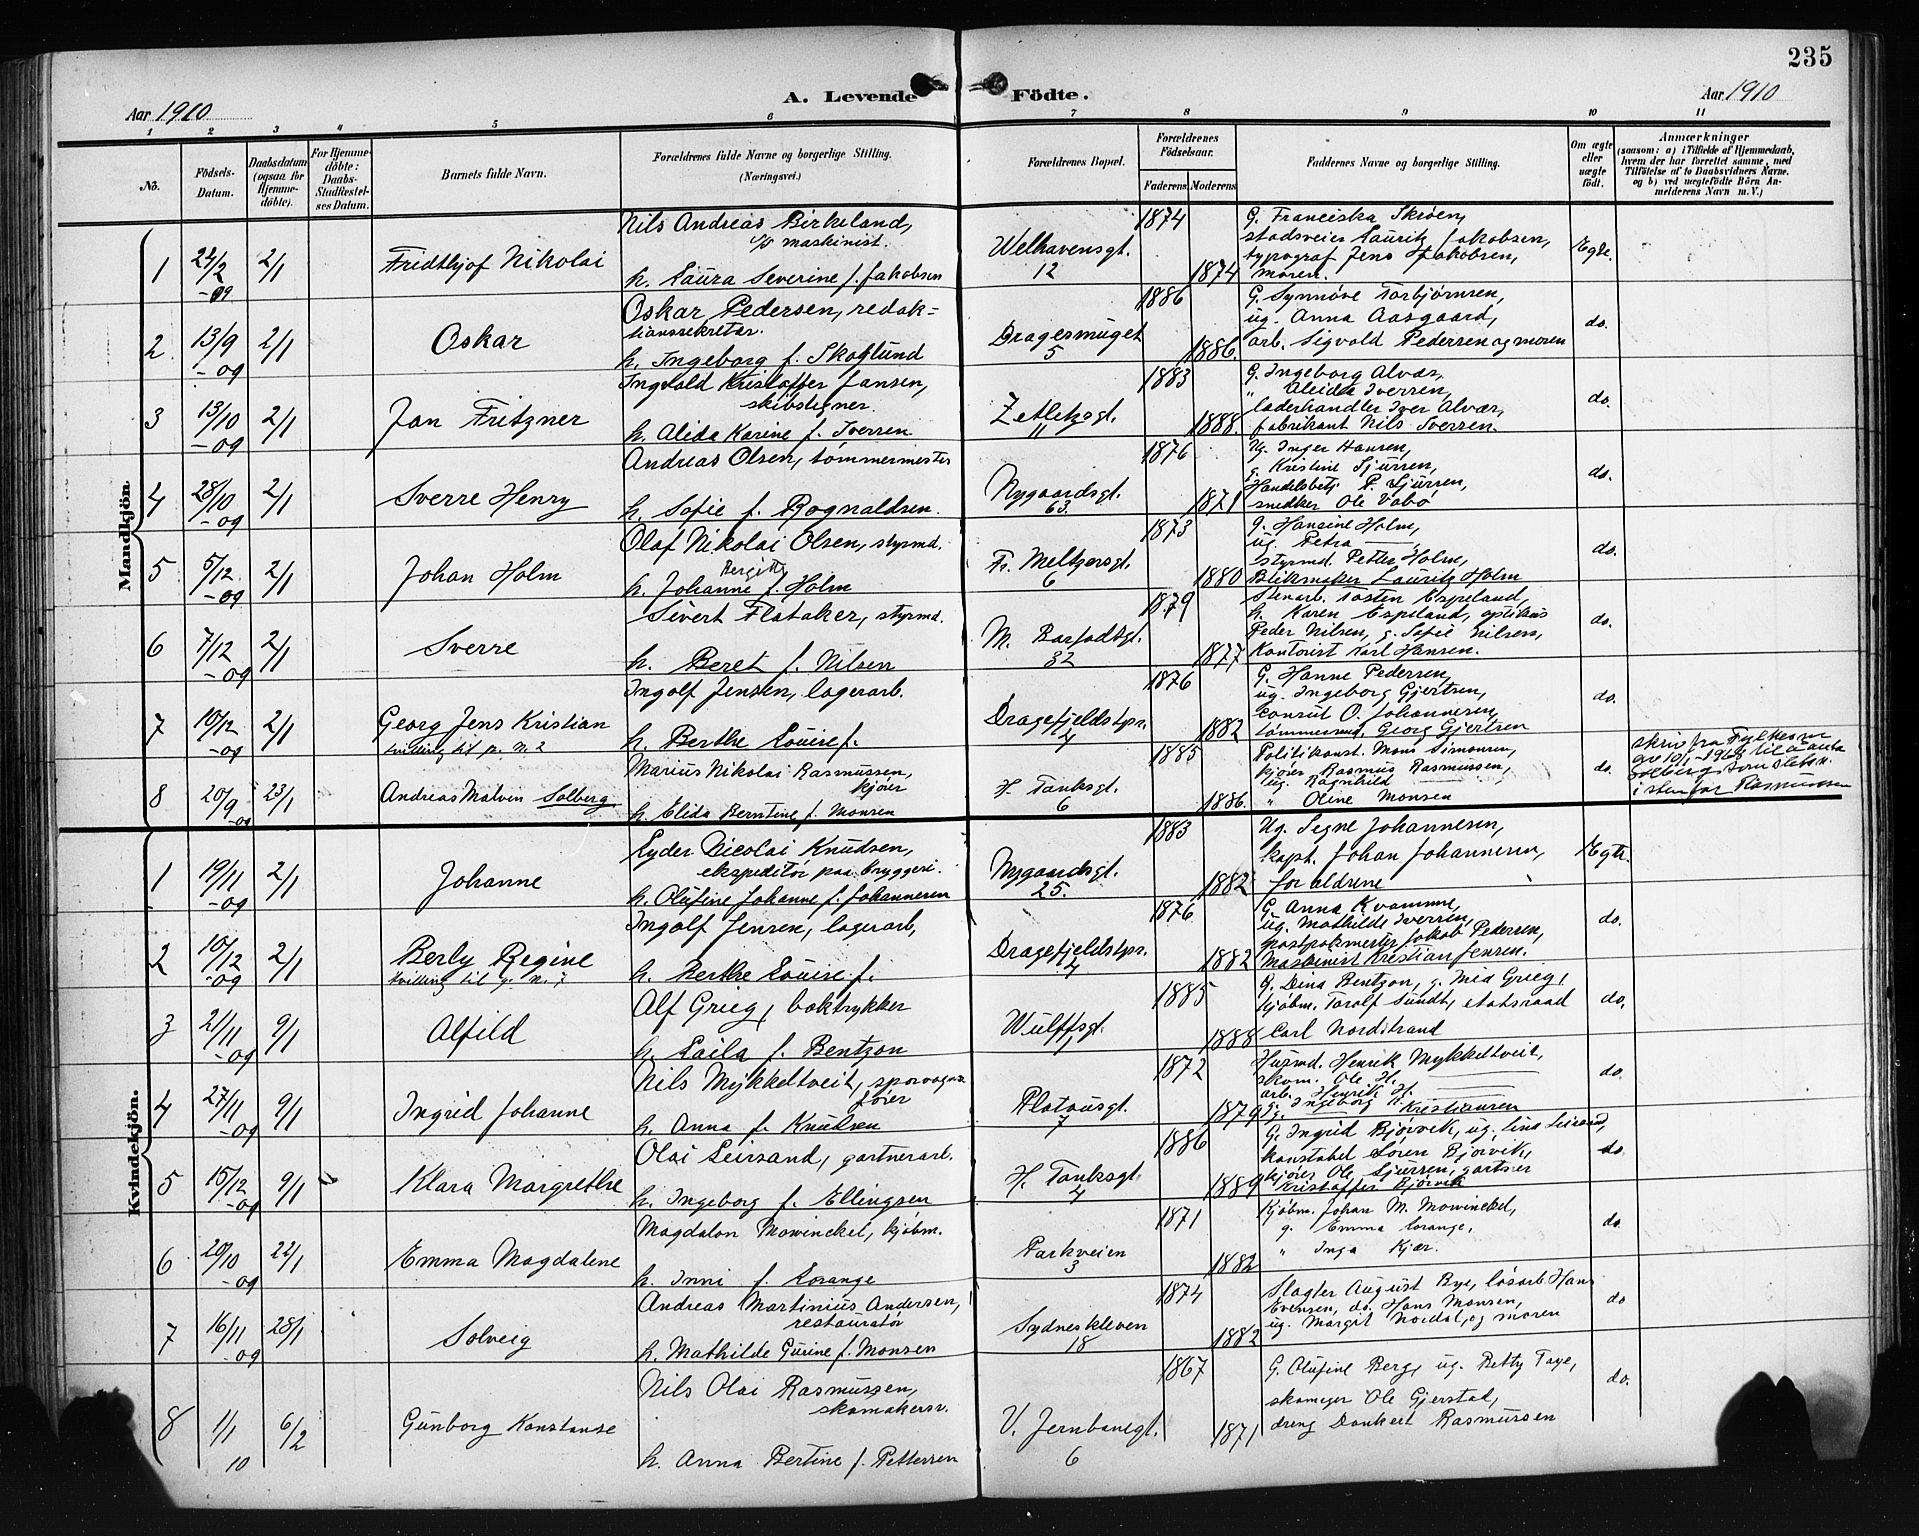 235
Aar 1910
A. Levende Födte.
Aar 1910
1 2 3 4 5 6 7 8 9 10 11
No.
Födsels-Datum.
Daabsdatum (ogsaa for Hjemme-döbte).
For Hjemme-döbte: Daabs-Stadfæstelses Datum.
Barnets fulde Navn.
Forældrenes fulde Navne og borgerlige Stilling. (Næringsvei.)
Forældrenes Bopæl.
Forældrenes Födselsaar.
Faderens. Moderens.
Faddernes Navne og borgerlige Stilling.
Om ægte eller uægte født.
Anmærkninger
(saasom: a) i Tilfælde af Hjemmedaab, hvem der har forrettet samme, med Tilföielse af to Daabsvidners Navne, og b) ved uægtefödte Börn Anmelderens Navn m. V.)
Mandkjön
1 24/2 -09 2/1 Fridthjof Nikolai
Nils Andreas Birkeland,
maskinist.
h. Laura Severine f. Jakobsen
Welhavensgt. 12
1874 1874
G. Franciska Skrøen,
stadsveier Lauritz Jakobsen,
typograf Jens Jakobsen,
moren.
Egte.
2 13/9 -09 2/1 Oskar
Oskar Pedersen, redak=
tionssekretær.
h. Ingeborg f. Skoglund
Dragesmuget 5
1886 1886.
G. Synnøve Torbjørnsen,
ug. Anna Aasgaard,
arb. Sigvald Pedersen og moren
do.
3 13/10 -09 2/1 Jan Fritzner
Ingvald Kristoffer Jansen,
skibstegner.
h. Alida Karine f. Iversen
Zetlitzgt. 11
1883 1888
G. Ingeborg Alvær,
" Aleida Iversen,
læderhandler Iver Alvær,
fabrikant Nils Iversen.
do.
4 28/10 -09 2/1 Sverre Henry
Andreas Olsen, tømmermester
h. Sofie f. Rognaldsen.
Nygaardsgt. 63
1876 1871
Ug. Inger Hansen,
g. Kristine Sjursen,
Handelsbetj. P. Sjursen,
snedker Ole Vabø
do.
5 5/12 -09 2/1 Johan Holm
Olaf Nikolai Olsen, styrmd.
h. Johanne Bergitte f. Holm
Fr. Meltzersgt. 6
1873 1880
G. Hansine Holm,
ug. Petra —
styrmd. Petter Holm,
Blikmaker Lauritz Holm
do.
6 7/12 -09 2/1 Sverre
Sivert Flataker, styrmd.
h. Beret f. Nilsen
M. Barfodtgt. 32
1879 1877
Stenarb. Tosten Espeland,
h. Karen Espeland, optikus
Peder Nilsen, g. Sofie Nilsen,
Kontorist Karl Hansen.
do.
7 10/12 -09 2/1 Georg Jens Kristian
tvilling til p. n. 2
Ingolf Jensen, lagerarb.
h. Berthe Louise f.
Dragefjeldstpr. 4
1876 1882
G. Hanne Pedersen,
ug. Ingeborg Gjertsen,
consul O. Johannesen,
tømmermd. Georg Gjertsen
do.
8 20/9 -09 23/1 Andreas Malvin Solberg
Marius Nikolai Rasmussen,
kjøier
h. Elida Berntine f. Monsen
H. Tanksgt. 6
1885 1886.
Politikonst. Mons Simonsen,
kjører Rasmus Rasmussen,
ug. Ragnhild —
" Oline Monsen
do.
skriv fra Fylkesm
av 10/1-1968 til å anta
Solberg som slektsn.
i sten for Rasmussen
Kvindekjön.
1 19/11 -09 2/1 Johanne
Lyder Nicolai Knudsen,
ekspeditør paa bryggeri.
h. Olufine Johanne f. Johannesen
Nygaardsgt. 25.
1883 1882
Ug. Segne Johannesen,
kapt. Johan Johannesen,
forældrene
Egte.
2 10/12 -09 2/1 Berly Regine
tvilling til g. n. 7
Ingolf Jensen, lagerarb.
h. Berthe Louise f.
Dragefjeldstpr. 4
1876 1882
G. Anna Kvamme,
ug. Mathilde Iversen,
postpakmester Jakob Pedersen,
Maskinist Kristian Jensen.
do.
3 21/11 -09 9/1 Alfild
Alf Grieg, boktrykker
h. Laila f. Bentzon
Wulffsgt. 1
1885 1888
G. Dina Bentzon, g. Mia Grieg,
Kjøbm. Torolf Sundt, etatsraad
Carl Nordstrand
do.
4 27/11 -09 9/1 Ingrid Johanne
Nils Mykkeltveit, sporvogns
fører
h. Anna f. Knudsen
Platousgt. 7
1872 1879
Husmd. Henrik Mykkeltveit,
skom. Ole H. —
arb. Henrik H. —
g. Ingeborg K. —
g. — Kristiansen
do.
5 15/12 -09 9/1 Klara Margrethe
Olai Leirsand, gartnerarb.
h. Ingeborg f. Ellingsen
H. Tanksgt. 4
1886 1889
G. Ingrid Bjørvik, ug. Lina Leirsand,
konstabel Søren Bjørvik,
kjører Ole Sjursen, gartner
Kristoffer Bjørvik
do.
6 20/10 -09 22/1 Emma Magdalene
Magdalon Mowinckel, kjøbm.
h. Inni f. Lorange
Parkveien 3
1871 1882
Kjøbm. Johan M. Mowinckel,
g. Emma Lorange,
" Inga Kjær.
do.
7 16/11 -09 28/1 Solveig
Andreas Martinius Andersen,
restauratør
h. Mathilde Gurine f. Monsen
Sydneskleven 18
1874 1882
Slagter August Bye, løsarb. Hans
Evensen, do. Hans Monsen,
ug. Margit Nordal, og moren
do
8 1/1 10 6/2 Gunborg Konstanse
Nils Olai Rasmussen,
skomakersv.
h. Anna Bertine f. Pettersen
V. Jernbanegt. 6
1867 1871
G. Olufine Berg, ug. Betty Faye,
skomager Ole Gjerstad,
dreng Dankert Rasmussen
do.